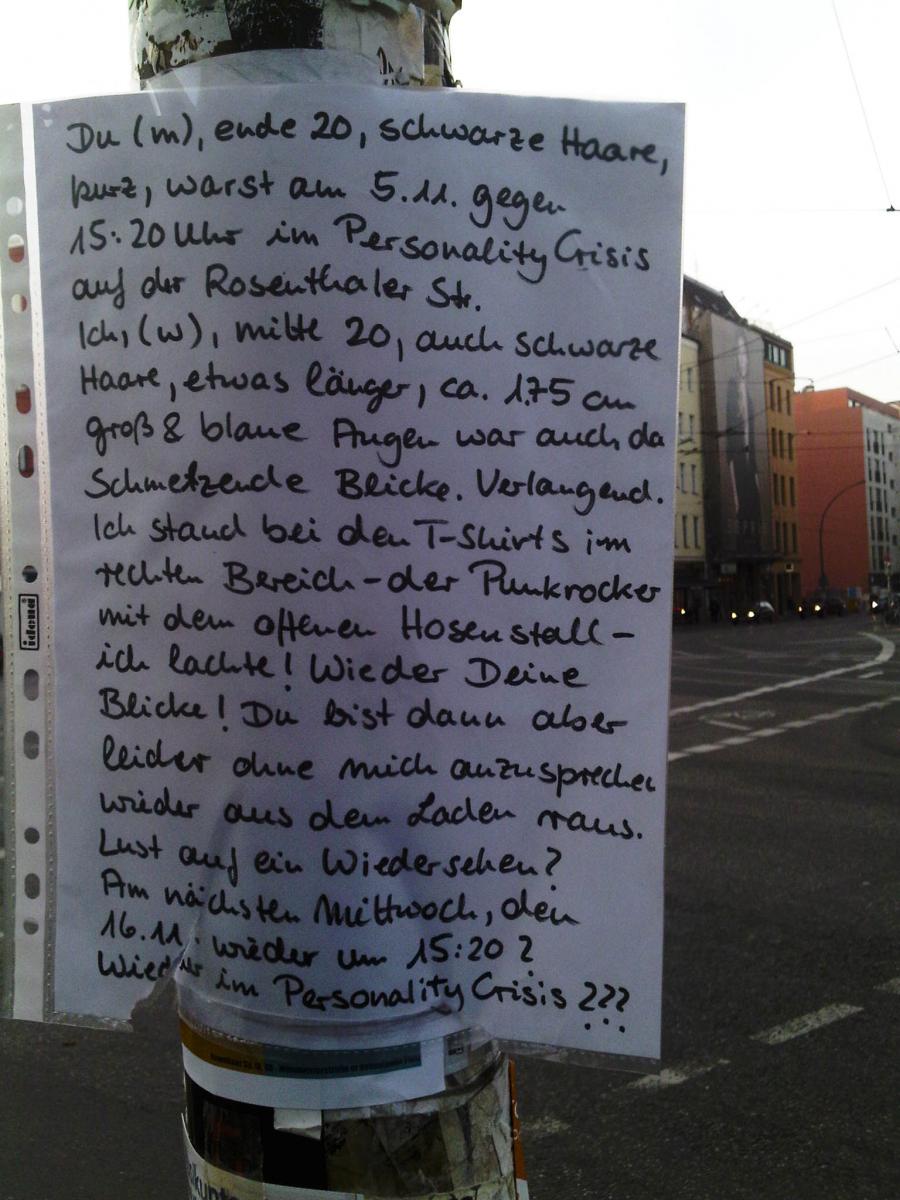 Du (m), ende 20, schwarze Haare,
kurz, warst am 5.11. gegen
15:20 Uhr im Personality Crisis
auf der Rosenthaler Str.
Ich, (w), mitte 20, auch schwarze
Haare, etwas länger, ca. 1.75 cm
groß & blaue Augen war auch da
Schmetzende Blicke. Verlangend.
Ich stand bei den T-Shirts im
rechten Bereich - der Punkrocker
mit dem offenen Hosenstall -
ich lachte! Wieder Deine
Blicke! Du bist dann aber
leider ohne mich anzusprechen
wieder aus dem Laden raus.
Lust auf ein Wiedersehen?
Am nächsten Mittwoch, den
16.11. wieder um 15:20?
Wieder im Personality Crisis ???
idena